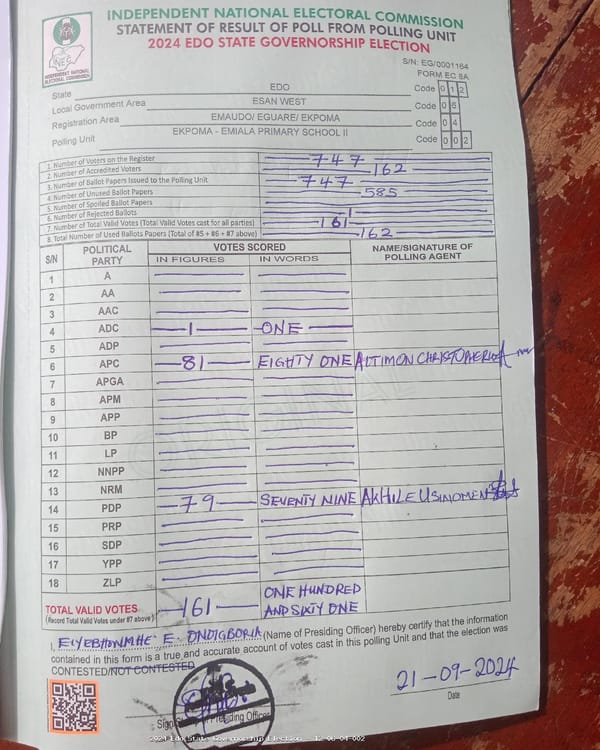 INDEPENDENT NATIONAL ELECTORAL COMMISSION
STATEMENT OF RESULT OF POLL FROM POLLING UNIT
2024 EDO STATE GOVERNORSHIP ELECTION
INEC
INDEPENDENT NATIONAL ELECTORAL COMMISSION
S/N: EG/0001164
FORM EC 8A
State EDO Code 0 1 2
Local Government Area ESAN WEST Code 0 6
Registration Area EMAUDO/ EGUARE/ EKPOMA Code 0 4
Polling Unit EKPOMA - EMIALA PRIMARY SCHOOL II Code 0 0 2
1. Number of Voters on the Register 747
2. Number of Accredited Voters 162
3. Number of Ballot Papers Issued to the Polling Unit 747
4. Number of Unused Ballot Papers 585
5. Number of Spoiled Ballot Papers
6. Number of Rejected Ballots 1
7. Number of Total Valid Votes (Total Valid Votes cast for all parties) 161
8. Total Number of Used Ballots Papers (Total of #5 + #6 + #7 above) 162
S/N POLITICAL PARTY VOTES SCORED NAME/SIGNATURE OF POLLING AGENT
IN FIGURES IN WORDS
1 A
2 AA
3 AAC
4 ADC 1 ONE
5 ADP
6 APC 81 EIGHTY ONE ALTIMON CHRISTOPHER
7 APGA
8 APM
9 APP
10 BP
11 LP
12 NNPP
13 NRM
14 PDP 79 SEVENTY NINE AKHILE USIMOMEN
15 PRP
16 SDP
17 YPP
18 ZLP
TOTAL VALID VOTES 161 ONE HUNDRED AND SIXTY ONE
(Record Total Valid Votes under #7 above)
I, E. ONDIGBORIA (Name of Presiding Officer) hereby certify that the information
contained in this form is a true and accurate account of votes cast in this polling Unit and that the election was
CONTESTED/NOT CONTESTED
21-09-2024
Date
Presiding Officer
2024 Edo State Governorship Election - 12-06-04-002